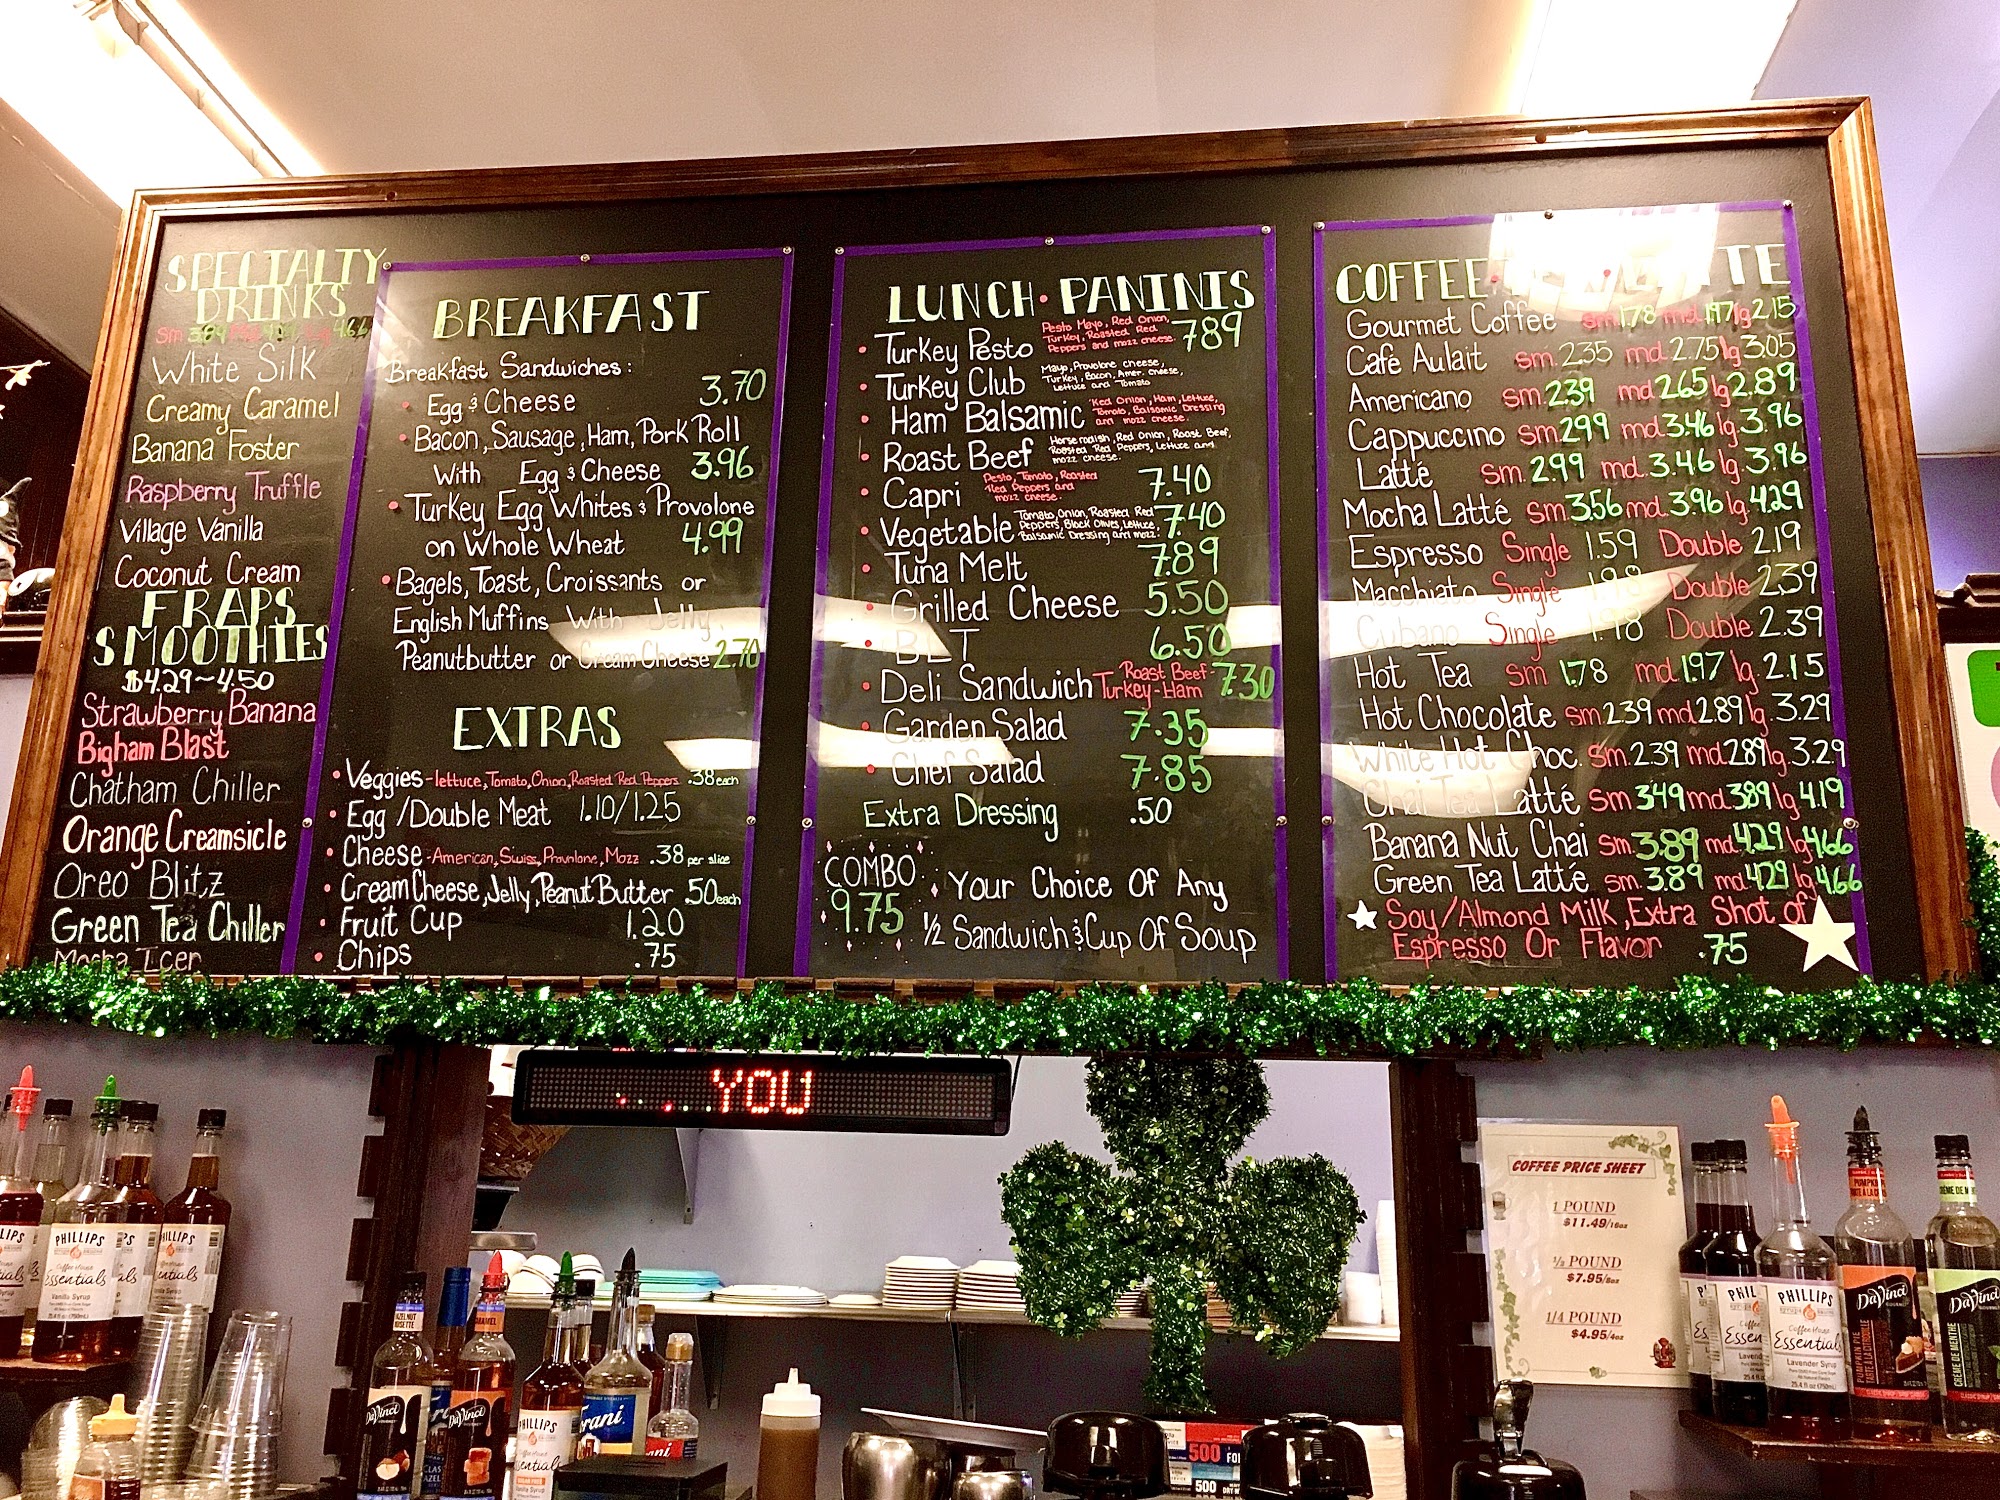 SPECIALTY
DRINKS
White Silk
Creamy Caramel
Banana Foster
Raspberry Truffle
Village Vanilla
Coconut Cream
FRAPS
SMOOTHIES
$4.29~4.50
Strawberry Banana
Bigham Blast
Chatham Chiller
Orange Creamsicle
Oreo Blitz
Green Tea Chiller
Mocha Icer
BREAKFAST
Breakfast Sandwiches:
• Egg & Cheese 3.70
• Bacon, Sausage, Ham, Pork Roll
With Egg & Cheese 3.96
• Turkey Egg Whites & Provolone
on Whole Wheat 4.99
• Bagels, Toast, Croissants or
English Muffins With Jelly,
Peanutbutter or Cream Cheese 2.70
EXTRAS
• Veggies - lettuce, Tomato, Onion, Roasted Red Peppers .38 each
• Egg / Double Meat 1.10/1.25
• Cheese - American, Swiss, Provolone, Mozz .38 per slice
• Cream Cheese, Jelly, Peanut Butter .50 each
• Fruit Cup 1.20
• Chips .75
LUNCH • PANINIS
• Turkey Pesto Pesto Mayo, Red Onion, Turkey, Roasted Red Peppers and mozz cheese. 7.89
• Turkey Club Mayo, Provolone cheese, Turkey, Bacon, Amer. cheese, Lettuce and Tomato
• Ham Balsamic Red Onion, Ham, Lettuce, Tomato, Balsamic Dressing and mozz cheese.
• Roast Beef Horseradish, Red Onion, Roast Beef, Roasted Red Peppers, Lettuce and mozz cheese.
• Capri Pesto, Tomato, Roasted Red Peppers and mozz cheese. 7.40
• Vegetable Tomato, Onion, Roasted Red Peppers, Black Olives, Lettuce, Balsamic Dressing and mozz. 7.40
• Tuna Melt 7.89
• Grilled Cheese 5.50
• BLT 6.50
• Deli Sandwich Roast Beef-Turkey-Ham 7.30
• Garden Salad 7.35
• Chef Salad 7.85
Extra Dressing .50
COMBO
9.75
• Your Choice Of Any
½ Sandwich & Cup Of Soup
COFFEE
Gourmet Coffee sm 1.78 md 1.97 lg 2.15
Café Aulait sm. 2.35 md 2.75 lg 3.05
Americano sm. 2.39 md 2.65 lg 2.89
Cappuccino sm 2.99 md. 3.46 lg. 3.96
Latté sm. 2.99 md. 3.46 lg. 3.96
Mocha Latté sm 3.56 md. 3.96 lg. 4.29
Espresso Single 1.59 Double 2.19
Macchiato Single 1.98 Double 2.39
Cubano Single 1.98 Double 2.39
Hot Tea sm 1.78 md 1.97 lg. 2.15
Hot Chocolate sm 2.39 md 2.89 lg. 3.29
White Hot Choc. sm. 2.39 md 2.89 lg. 3.29
Chai Tea Latté sm 3.49 md 3.89 lg 4.19
Banana Nut Chai sm. 3.89 md 4.29 lg 4.66
Green Tea Latté sm. 3.89 md 4.29 lg 4.66
Soy/Almond Milk, Extra Shot of
Espresso Or Flavor .75
YOU
COFFEE PRICE SHEET
1 POUND
$11.49/16oz
½ POUND
$7.95/8oz
1/4 POUND
$4.95/4oz
PHILLIPS
Coffee House
Essentials
Vanilla Syrup
DaVinci
DaVinci
PHILLIPS
500
500
PHILLIPS
Coffee House
Essentials
Lavender Syrup
25.4 fl oz (750mL)
DaVinci
DaVinci